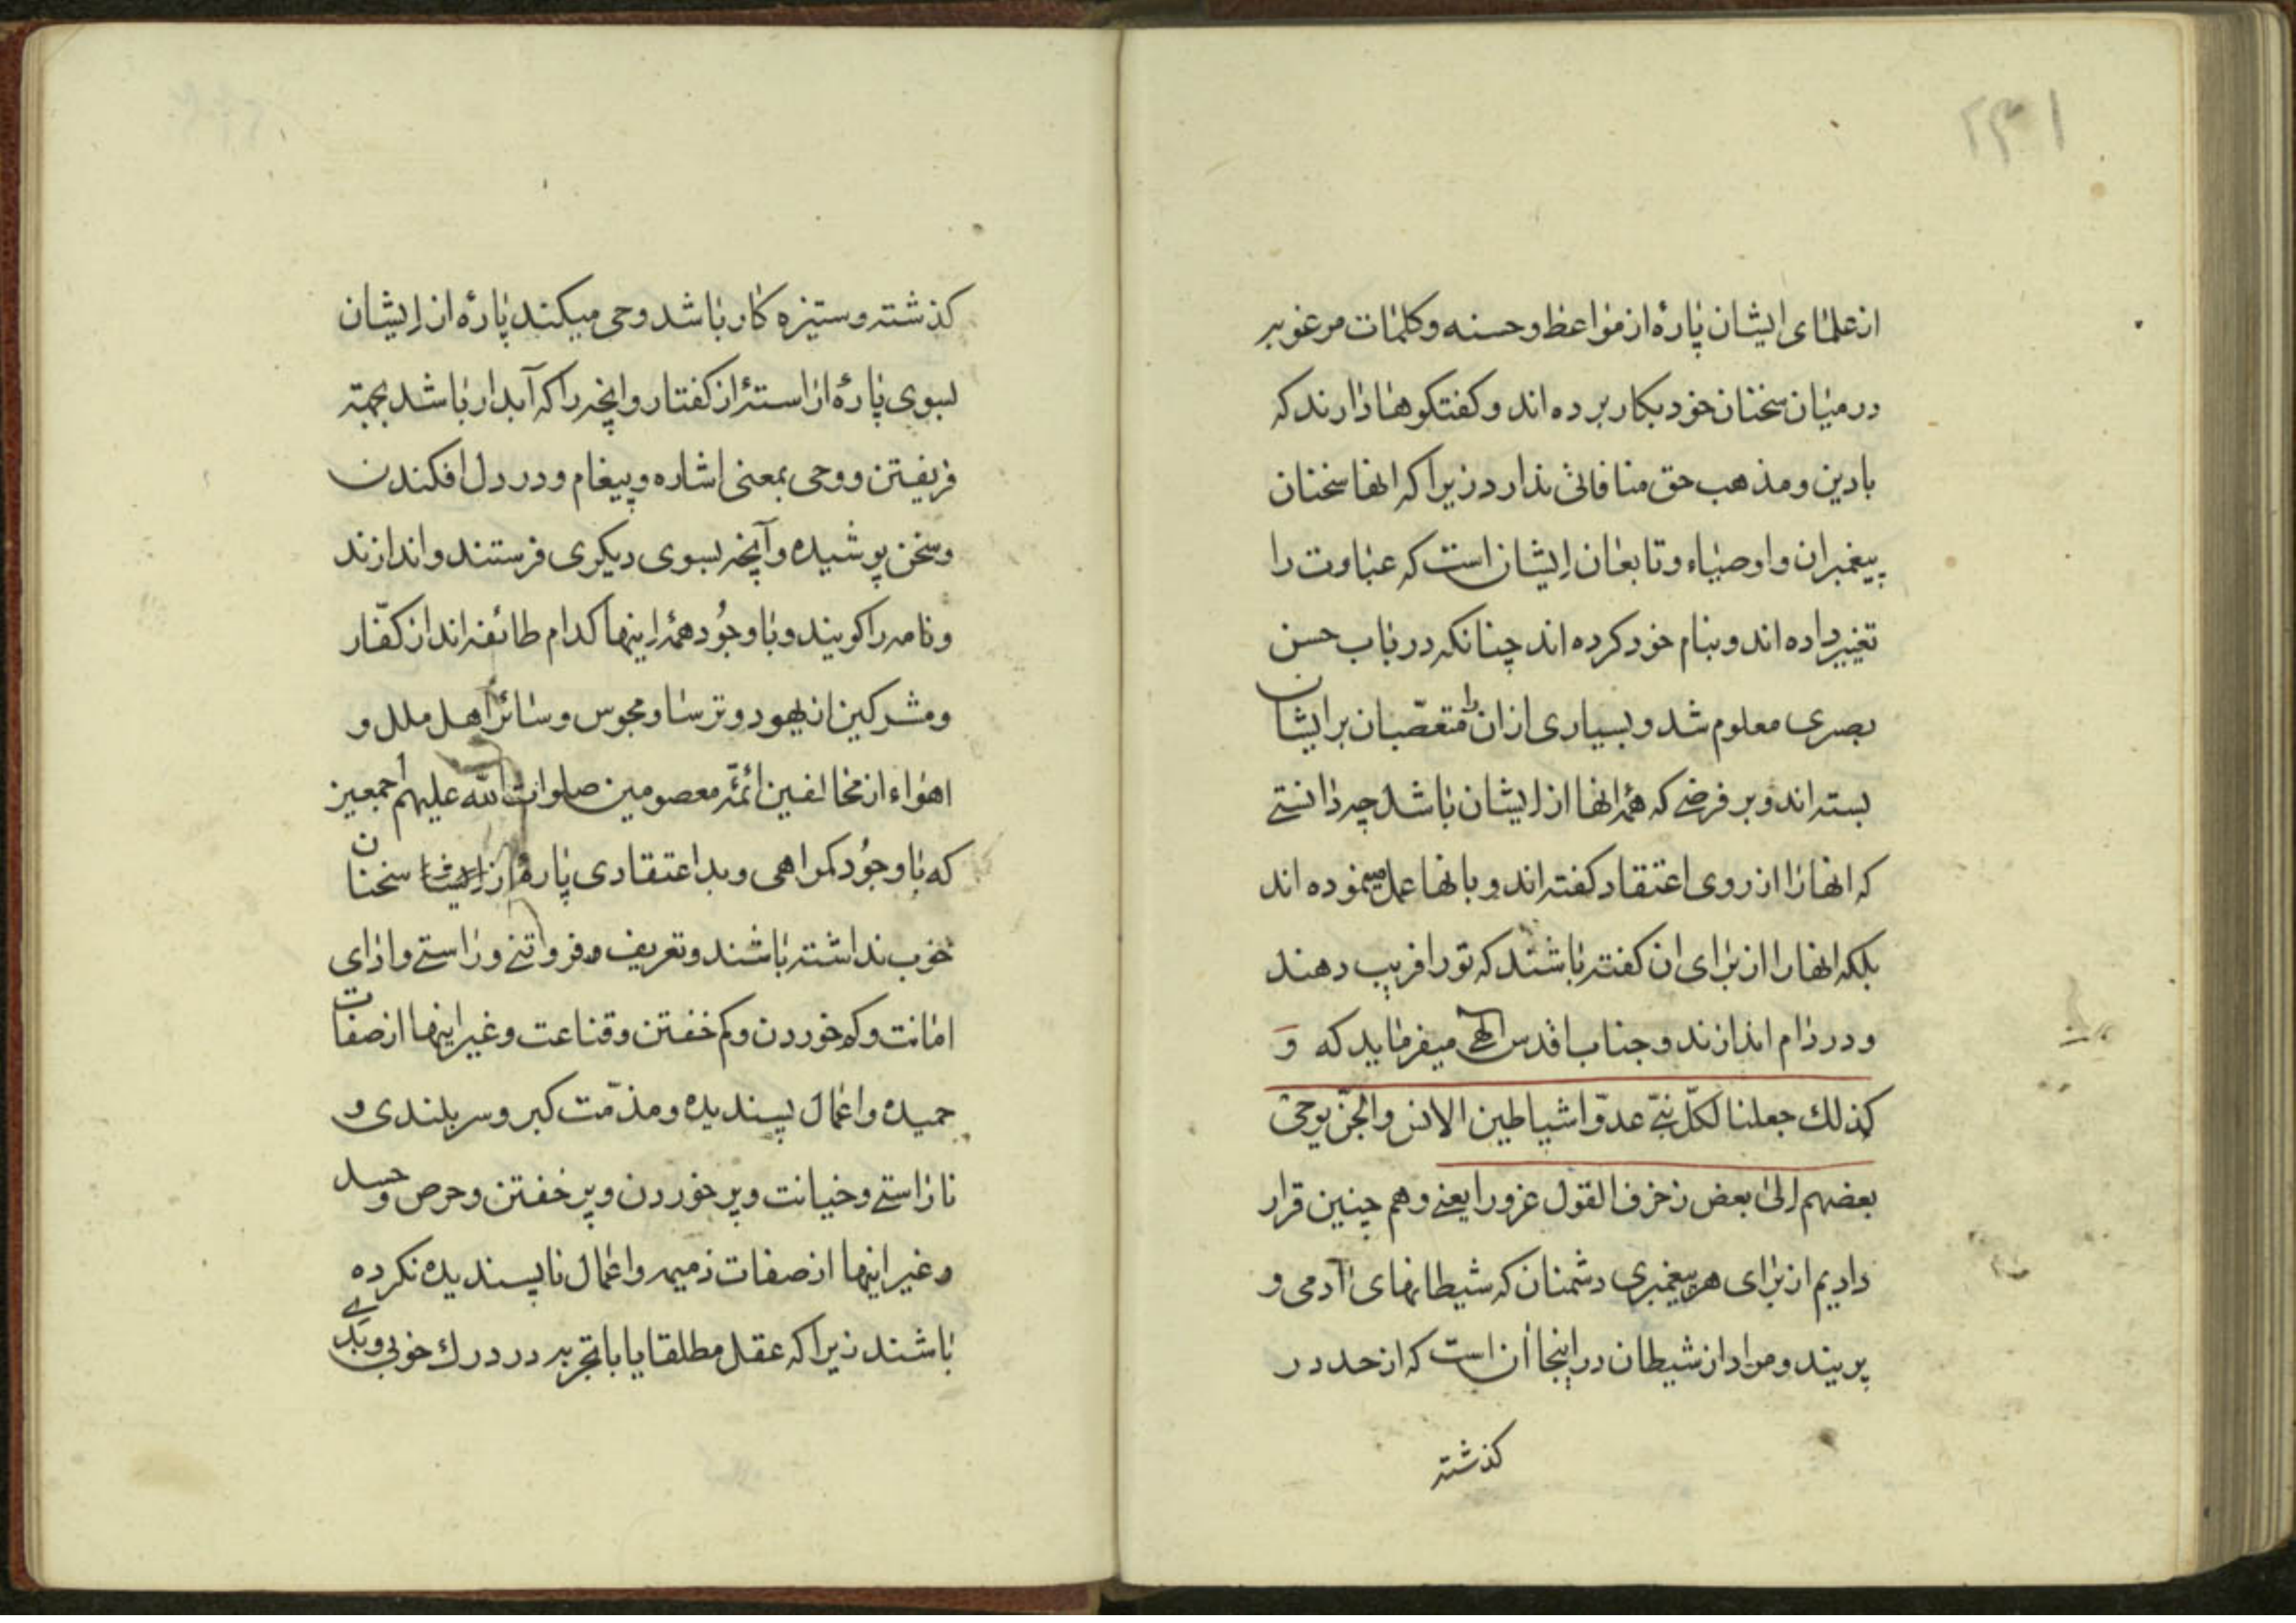 ۲۳۱
از علمای ایشان پارهٔ از مواعظ و حسنه و کلمات مرغوبه
در میان سخنان خود بکار برده اند و کفتکوها دارند که
با دین و مذهب حق منافاتی ندارد زیرا که انها سخنان
پیغمبران و اوصیاء و تابعان ایشان است که عباوت را
تغییر داده اند و بنام خود کرده اند چنانکه در باب حسن
بصری معلوم شد و بسیاری از ان متعصّبان بر ایشان
بسته اند و بر فرضی که همهٔ انها از ایشان باشد چه دانستی
که انها را از روی اعتقاد کفته اند و بانها عمل مینموده اند
بلکه انها را از برای ان کفته باشند که تو را فریب دهند
و در دام اندازند و جناب اقدس الهی میفرماید که وَ
کذلك جعلنا لکلّ نبیّ عدوّا شیاطین الانس والجنّ یوحی
بعضهم الی بعض زخرف القول غرورا یعنی و هم چنین قرار
دادیم از برای هر پیغمبری دشمنان که شیطانهای آدمی و
پریند و مراد از شیطان در اینجا آن است که از حد در
کذشته
کذشته و ستیزه کار باشد وحی میکند پارهٔ از ایشان
بسوی پارهٔ اراستهٔ از کفتار و انچه را که آبدار باشد بجهته
فریفتن و وحی بمعنی اشاره و پیغام و در دل افکندن
و سخن پوشیده و آنچه بسوی دیکری فرستند و اندازند
و نامه را کویند و با وجُود همهٔ اینها کدام طائفه اند از کفّار
و مشرکین از یهود و ترسا و مجوس و سائر اهل ملل و
اهواء از مخالفین ائمّه معصومین صلوات الله علیهم اجمعین
که با وجُود کمراهی و بد اعتقادی پارهٔ از ایشان سخنان
خوب نداشته باشند و تعریف و فروتنی و راستی و ادای
امانت و کم خوردن و کم خفتن و قناعت و غیر اینها از صفات
حمیده و اعمال پسندیده و مذمّت کبر و سر بلندی و
ناراستی و خیانت و پر خوردن و پر خفتن و حرص و حسد
و غیر اینها از صفات ذمیمه و اعمال ناپسندیده نکرده
باشند زیرا که عقل مطلقا یا با تجربه در درك خوبی و بدی